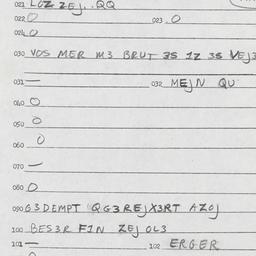 021 LOZ ZEJ..QQ
022 O 023.O
024 O
030 VOS MER M3 BRUT 3S 1Z 3S VEJ3
031 — 032 MEJN QU
040 O
050 O
060 O
070 —
080 O
090 G3DEMPT QG3REJX3RT AZOJ
100 BES3R F1N ZEJ OL3
101 — 102 ERGER